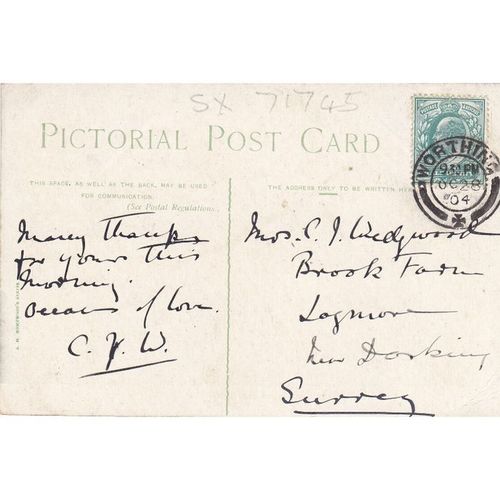 SX 71745
PICTORIAL POST CARD
THIS SPACE, AS WELL AS THE BACK, MAY BE USED
FOR COMMUNICATION.
(See Postal Regulations.)
Many Thanks
for yours this
morning.
Oceans of love.
C. J. W.
THE ADDRESS ONLY TO BE WRITTEN HER
WORTHING
9 PM
OC 28
04
Mrs. C. J. Wedgwood
Brook Farm
near Dorking
Surrey